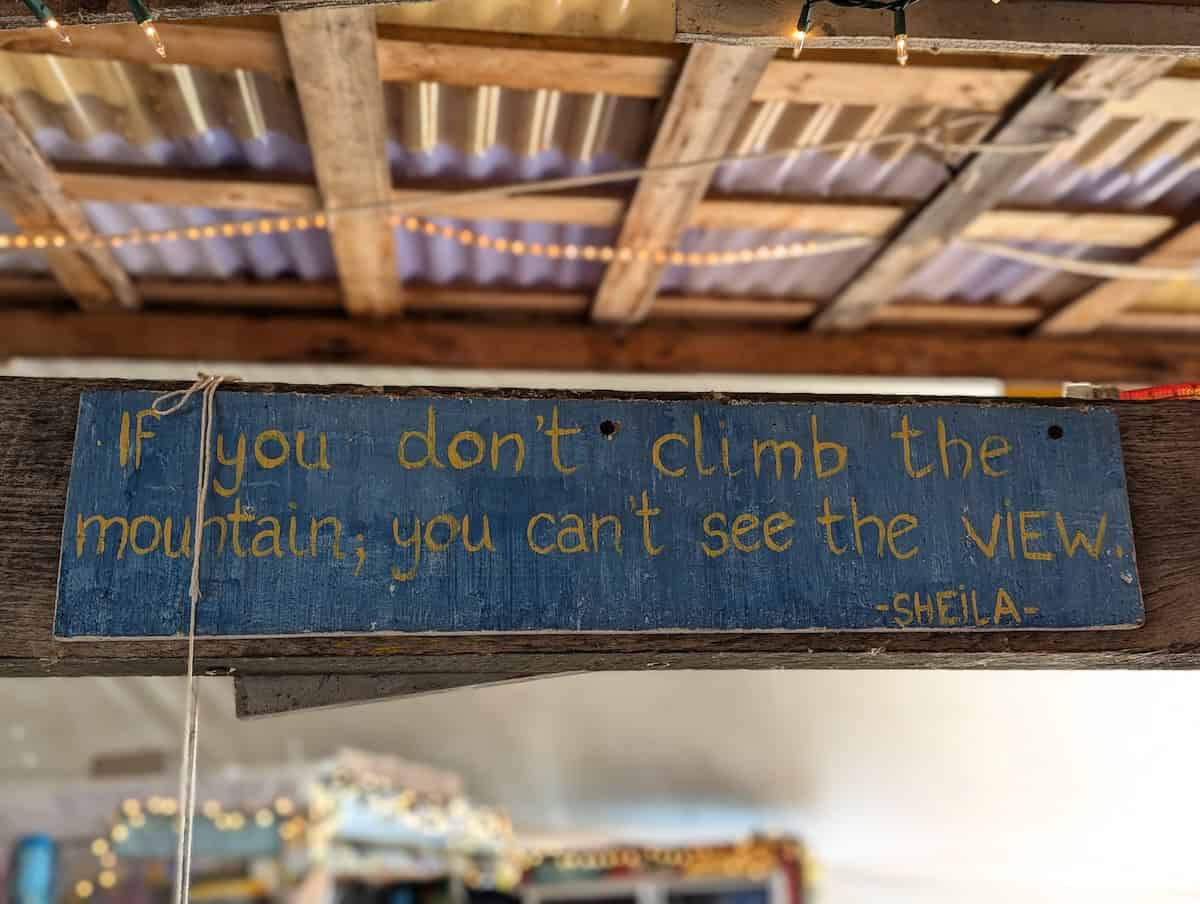 If you don't climb the
mountain; you can't see the VIEW.
-SHEILA-